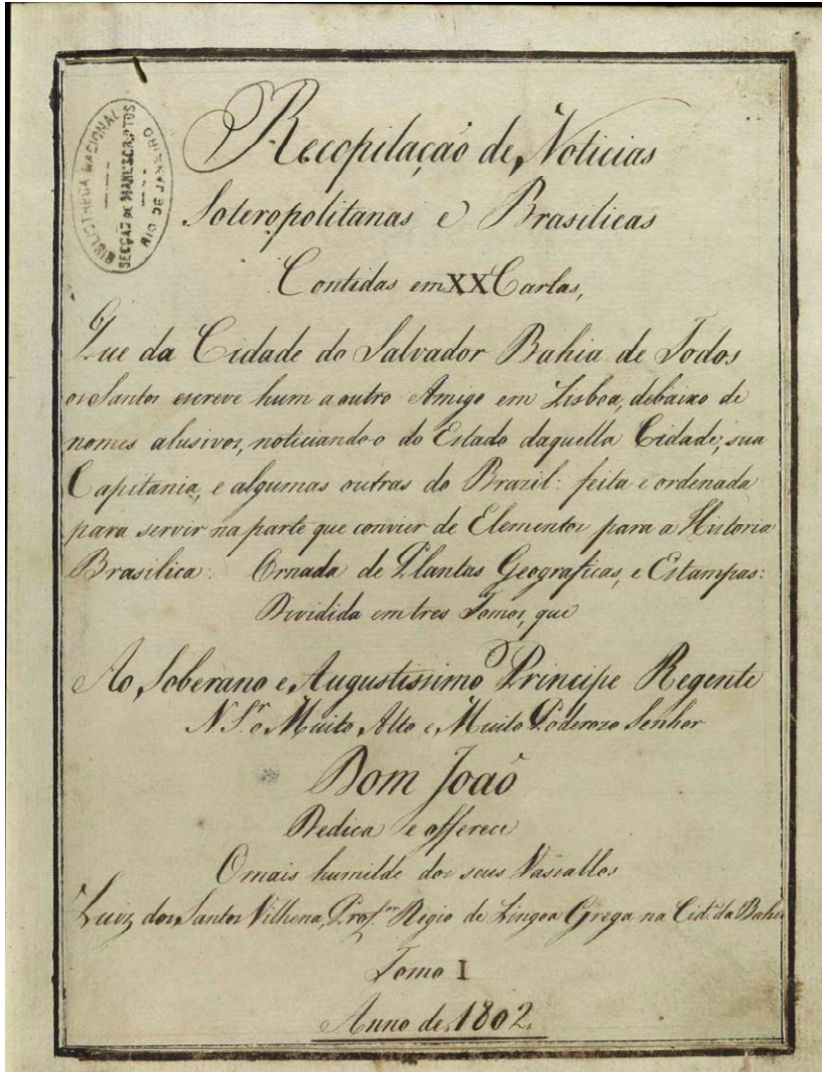 BIBLIOTHECA NACIONAL
SECÇÃO DE MANUSCRIPTOS
RIO DE JANEIRO
Recopilação de Noticias
Soteropolitanas e Brasilicas
Contidas em XX Cartas,
Que da Cidade do Salvador Bahia de Todos
os Santos escreve hum a outro Amigo em Lisboa, debaixo de
nomes alusivos, noticiando-o do Estado daquella Cidade, sua
Capitania, e algumas outras do Brazil: feita e ordenada
para servir na parte que convier de Elementos para a Historia
Brasilica: Ornada de Plantas Geograficas, e Estampas:
Dividida em tres Tomos, que
Ao Soberano e Augustissimo Principe Regente
N. Sr. o Muito Alto e Muito Poderozo Senhor
Dom João
Dedica e offerece
O mais humilde dos seus Vassallos
Luiz dos Santos Vilhena, Prof.or Regio de Lingoa Grega na Cid.e da Bahia
Tomo I
Anno de 1802.